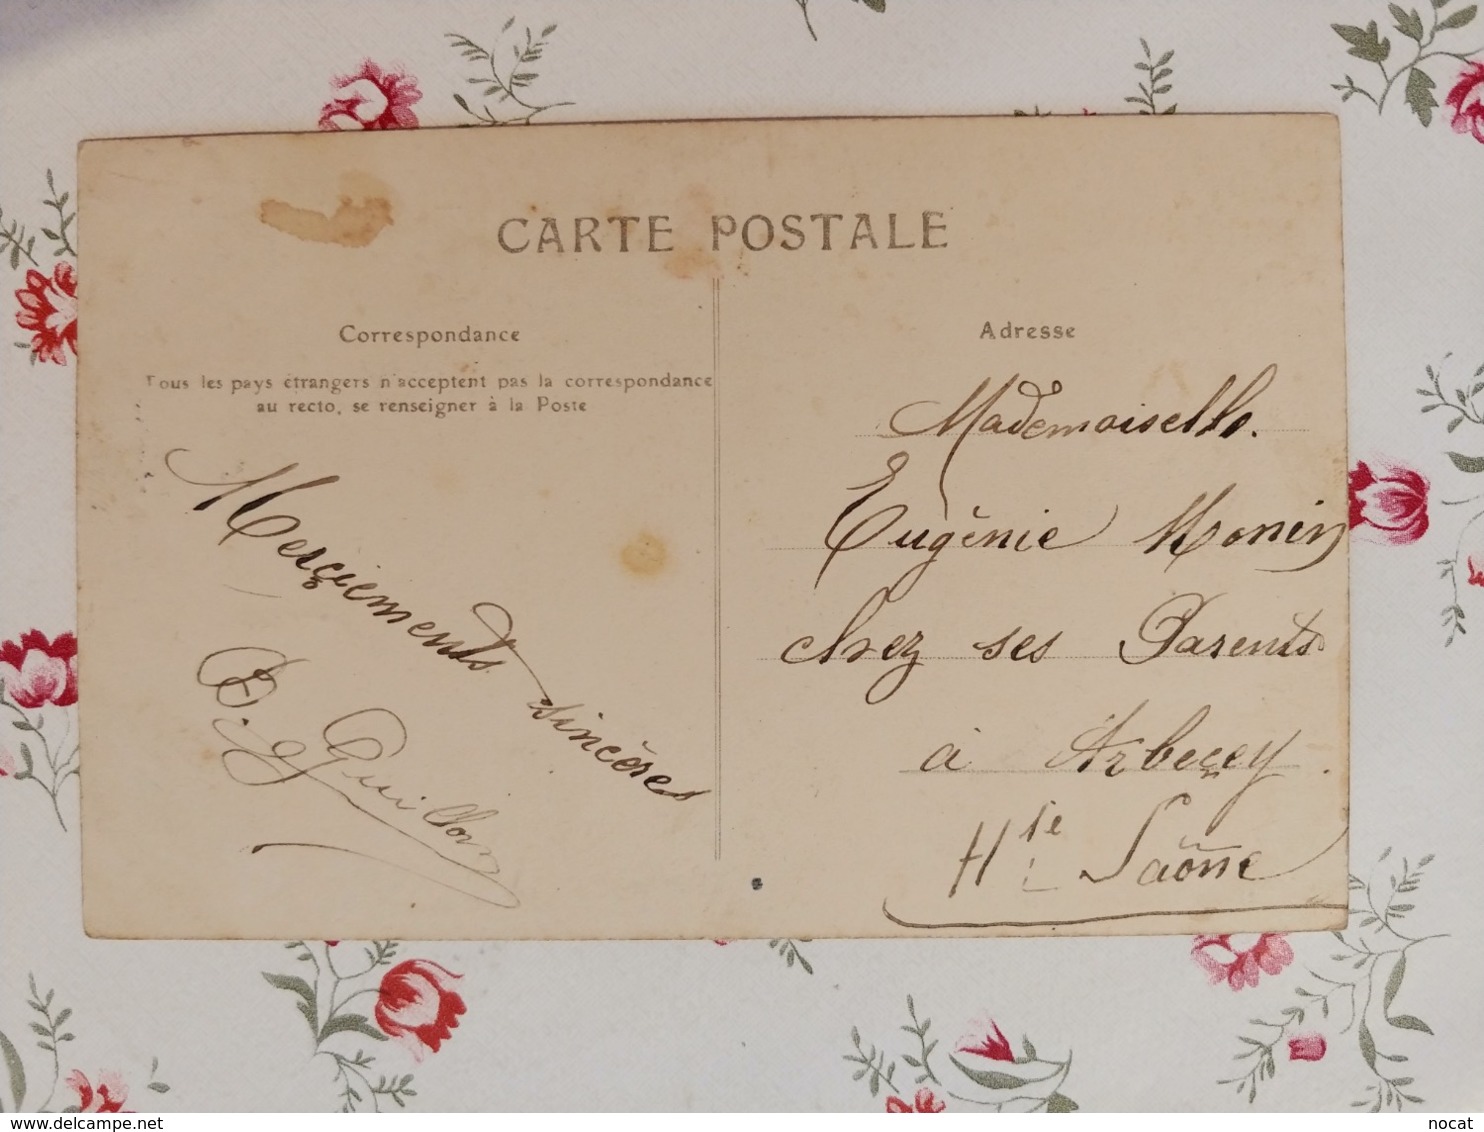 CARTE POSTALE
Correspondance
Tous les pays étrangers n'acceptent pas la correspondance
au recto, se renseigner à la Poste
Merçiements sincères
B. Guillon
Adresse
Mademoiselle.
Eugénie Monin
chez ses Parents
à Arbeçey.
Hte Saône
delcampe.net
nocat